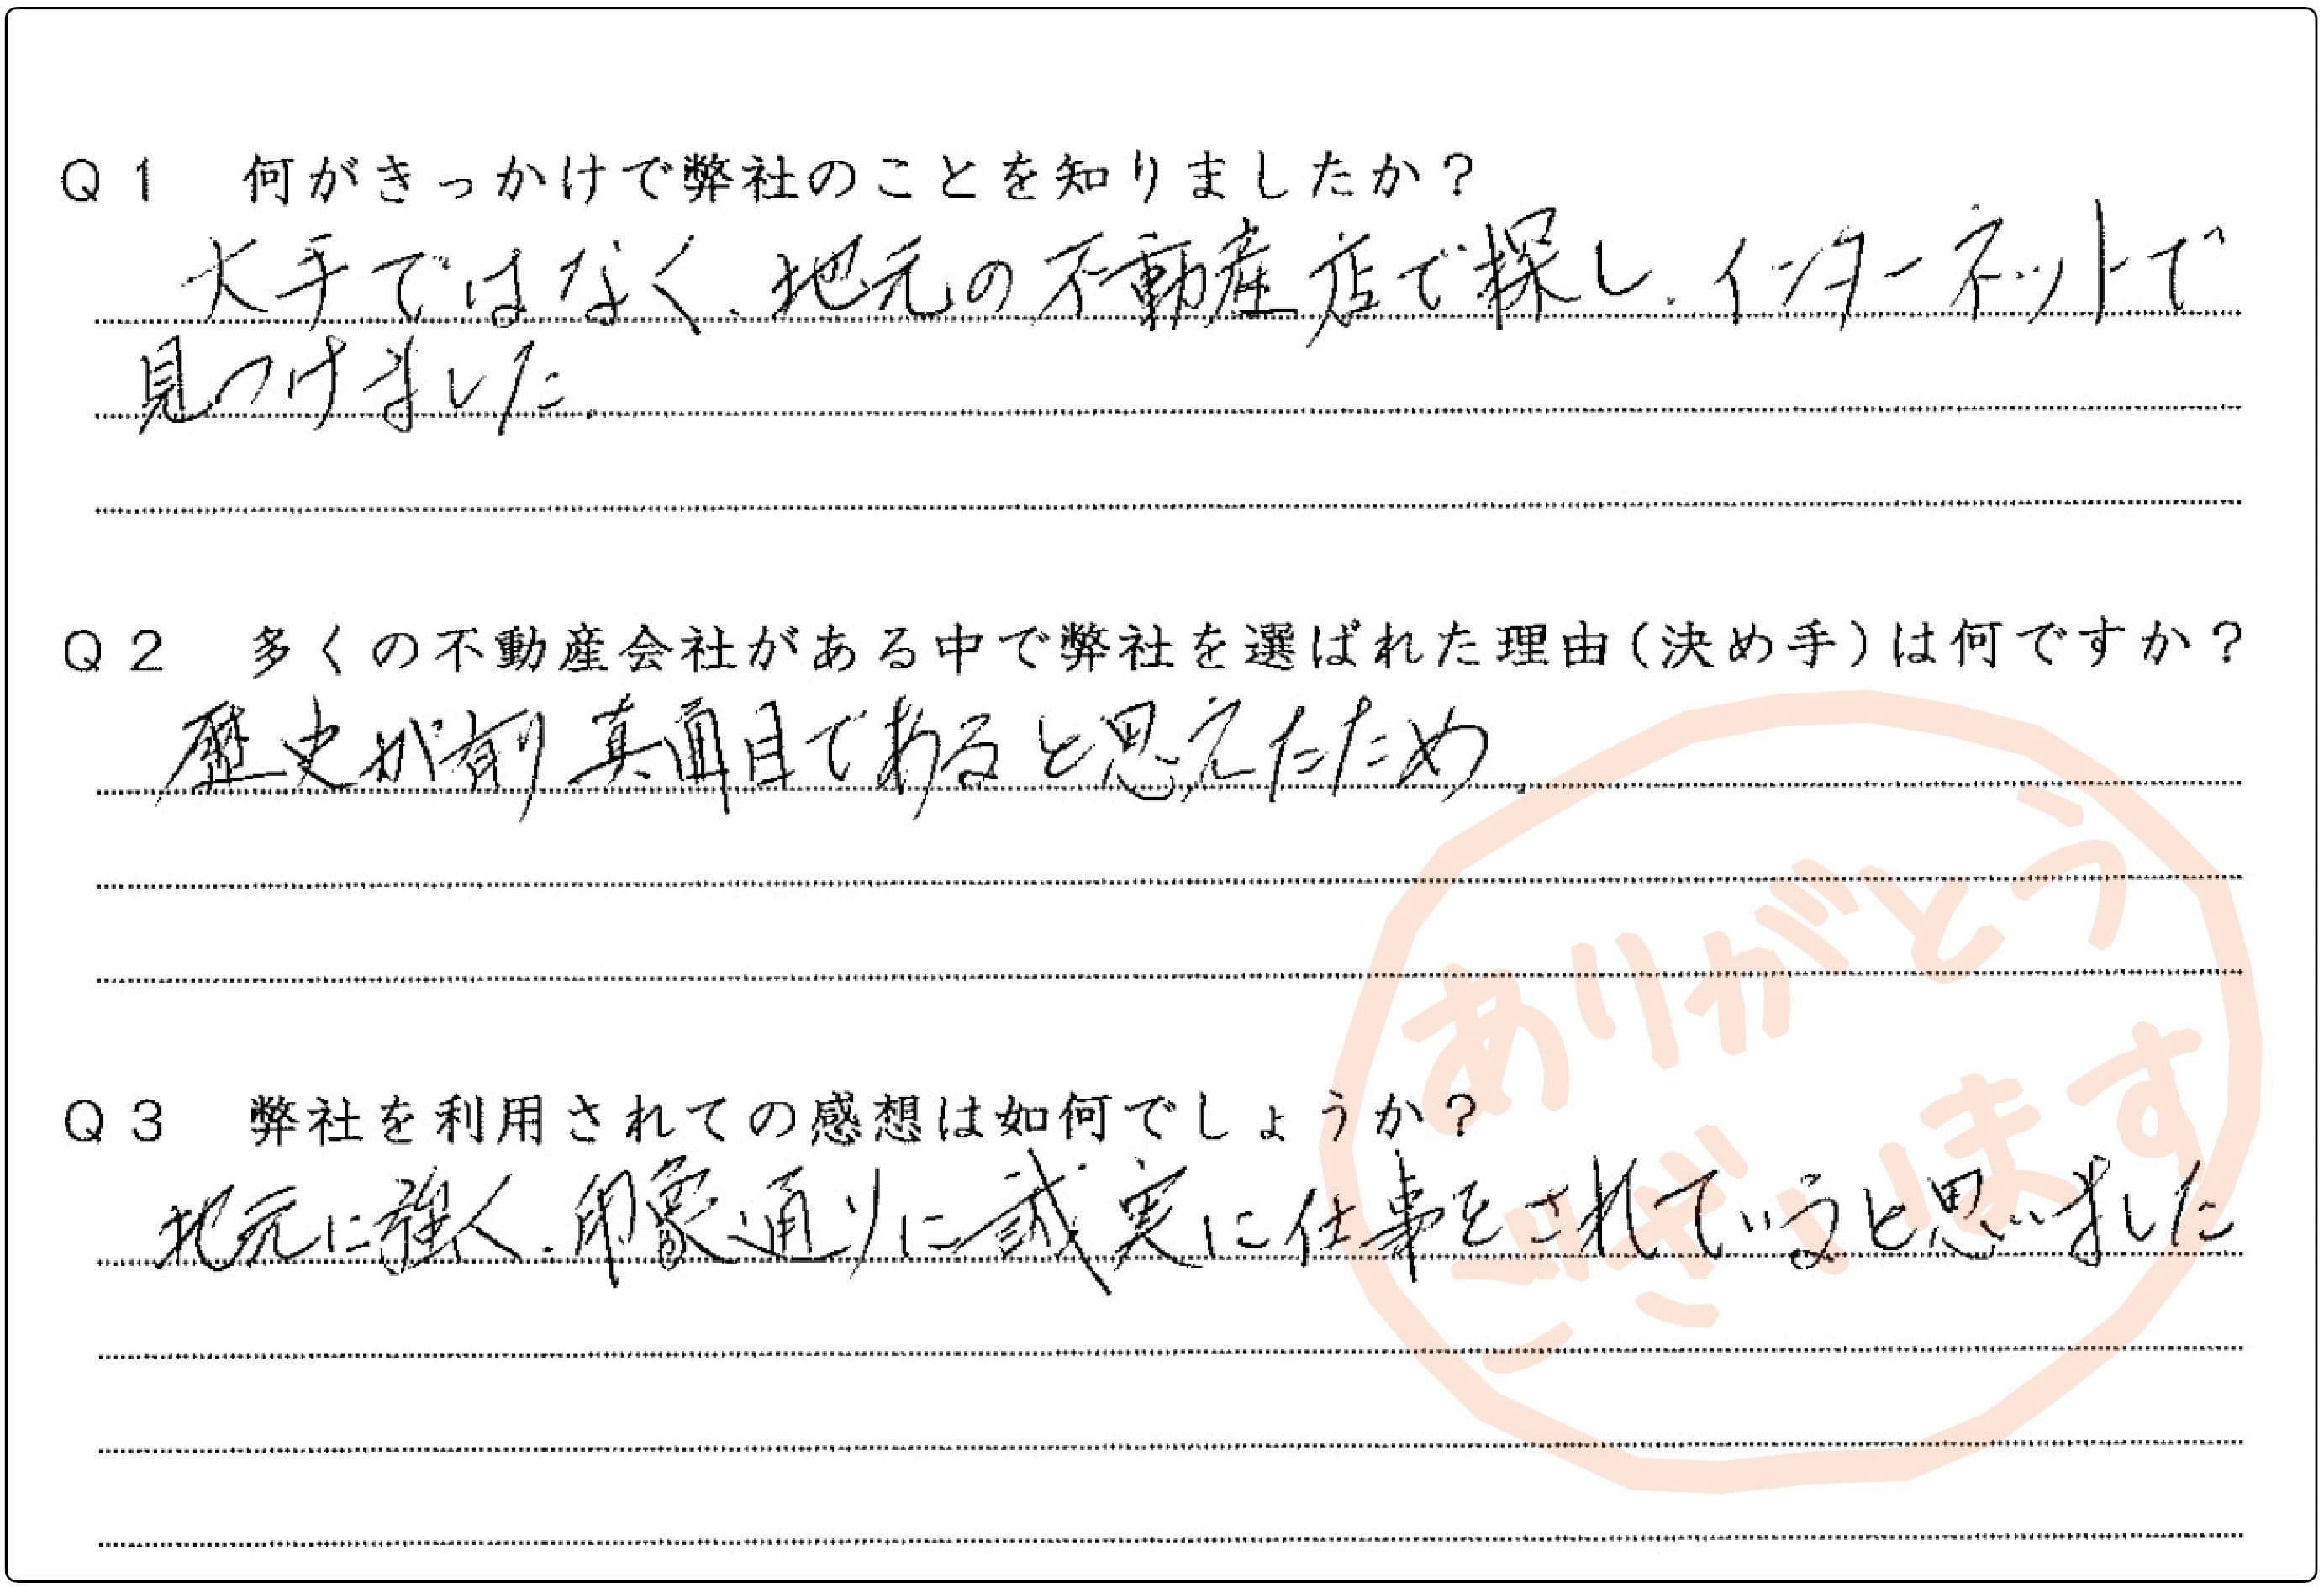 Q1 何がきっかけで弊社のことを知りましたか?
大手ではなく、地元の不動産店で探し、インターネットで
見つけました。
Q2 多くの不動産会社がある中で弊社を選ばれた理由(決め手)は何ですか?
歴史が有り真面目であると思えたため。
Q3 弊社を利用されての感想は如何でしょうか?
地元に強く、印象通りに誠実に仕事をされていると思いました
ありがとう
ございます